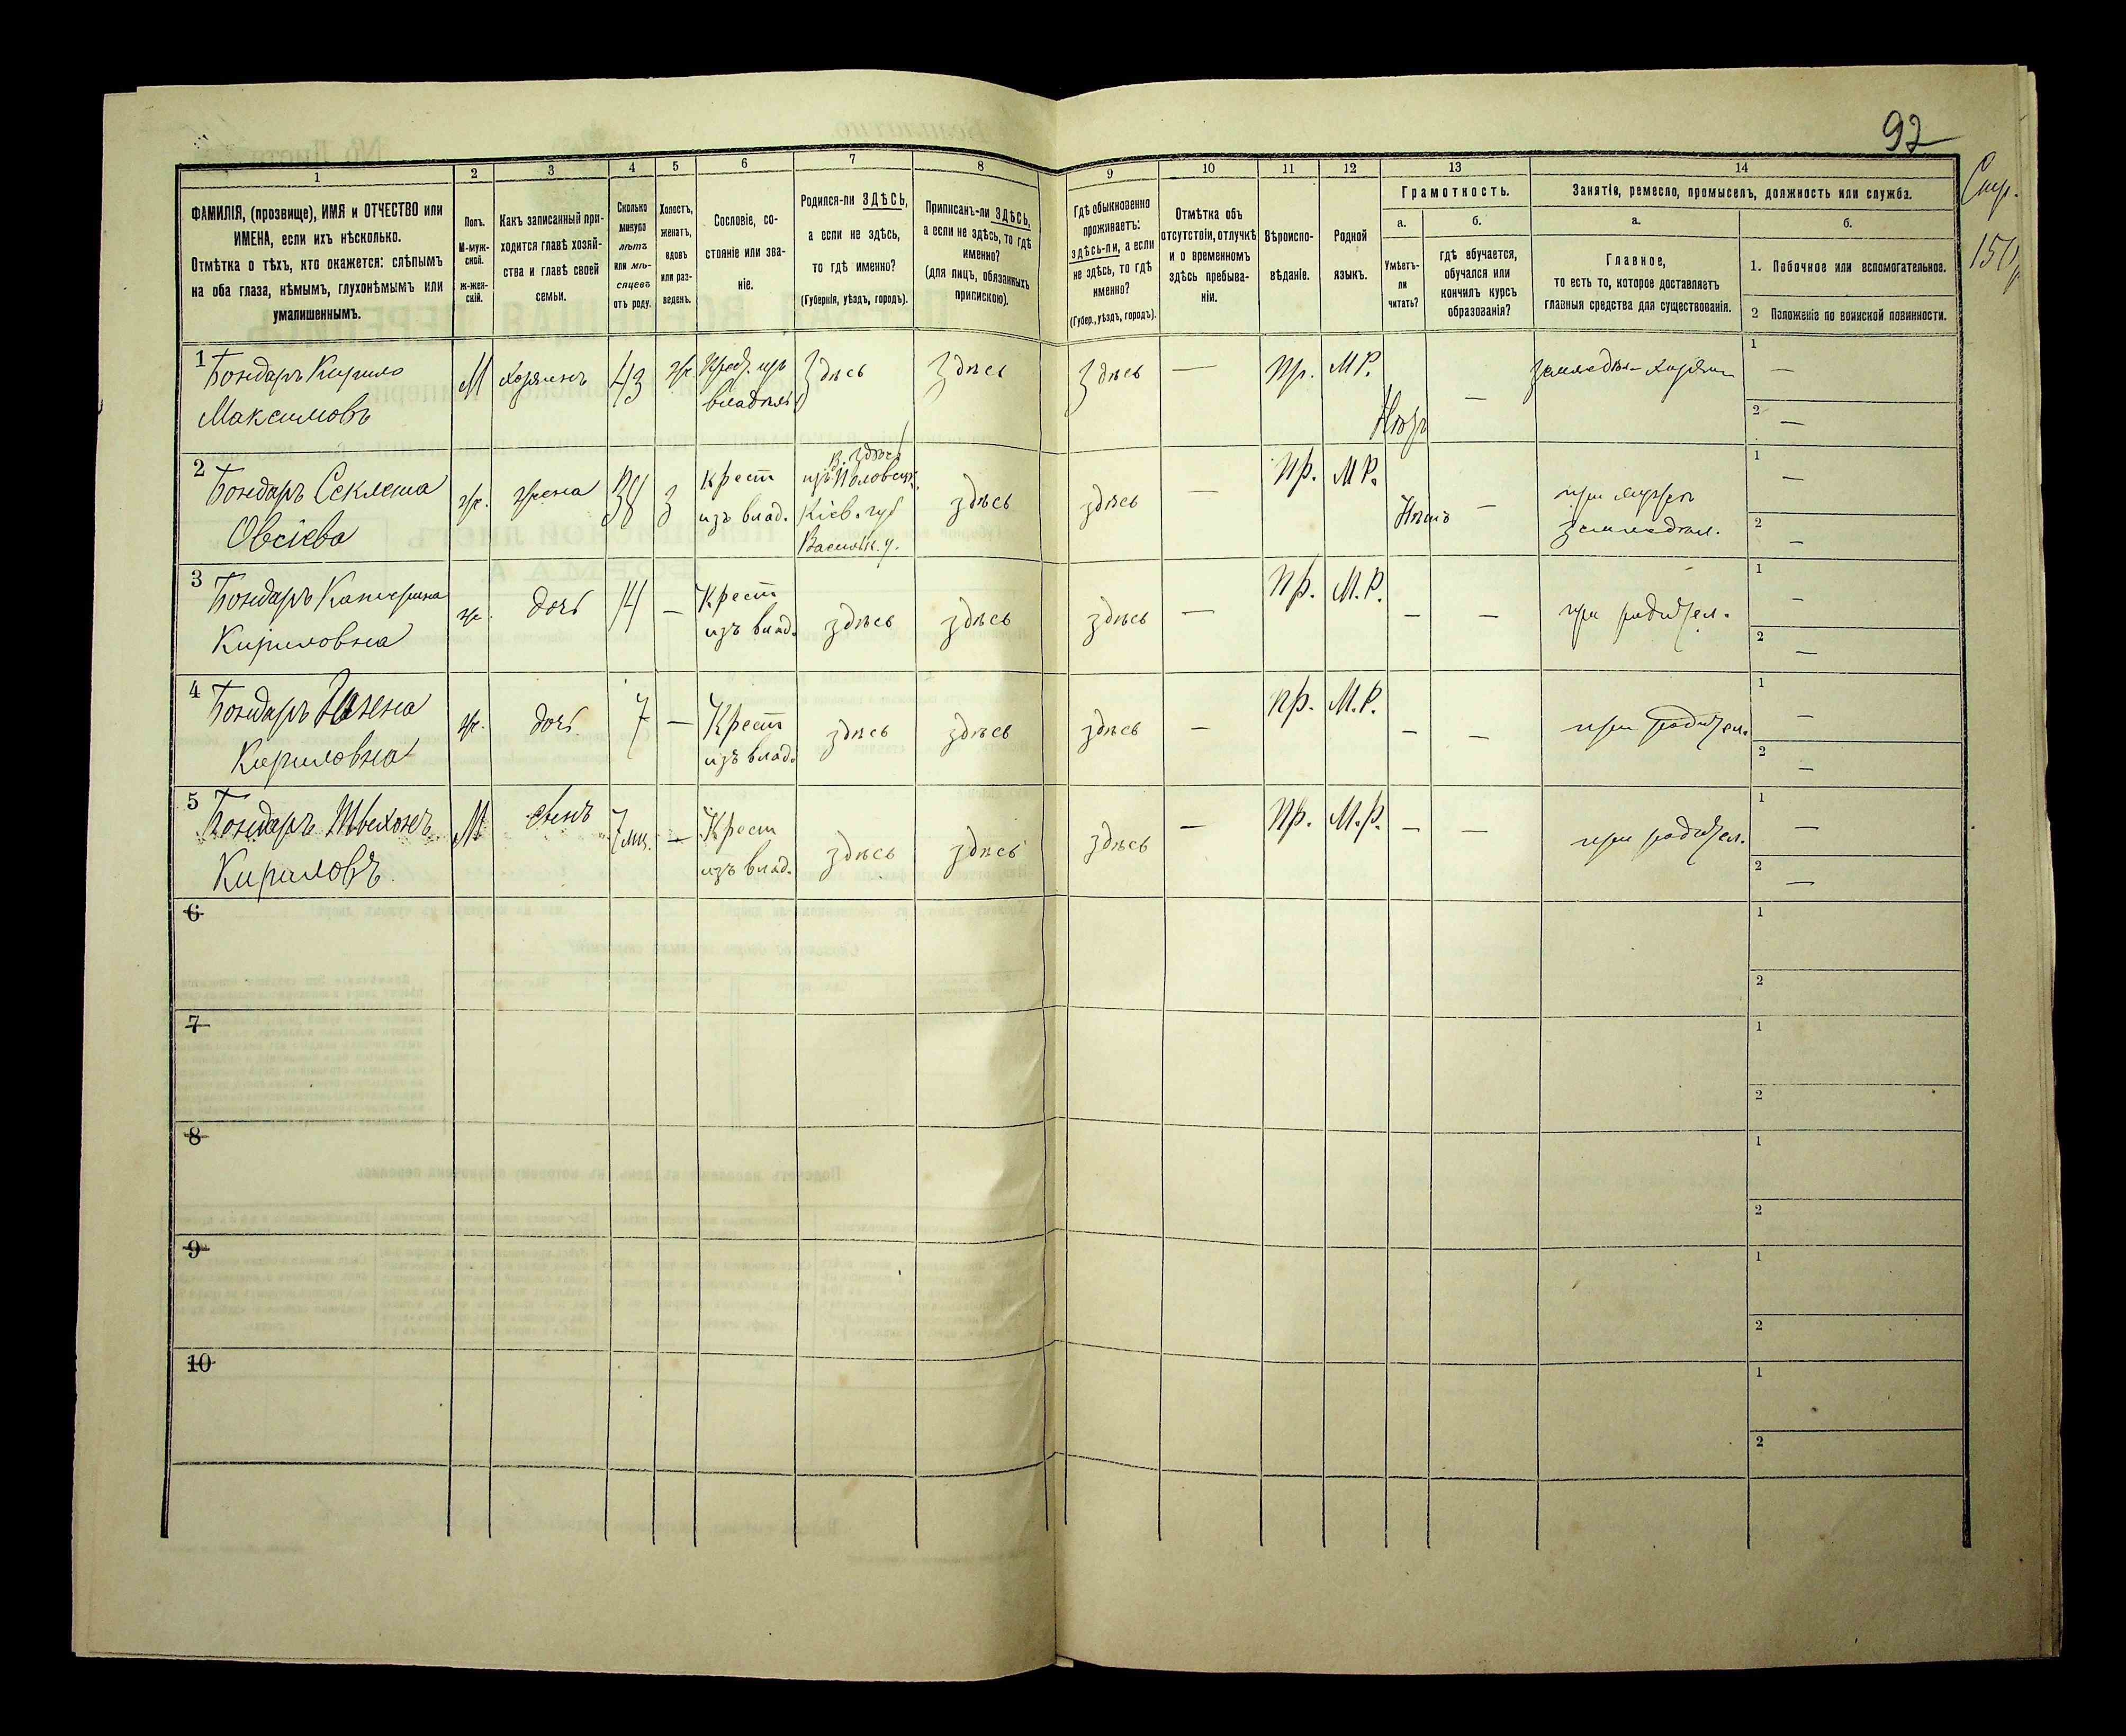 92
Стр.
1 2 3 4 5 6 7 8 9 10 11 12 13 14
ФАМИЛІЯ, (прозвище), ИМЯ и ОТЧЕСТВО или
ИМЕНА, если ихъ нѣсколько.
Отмѣтка о тѣхъ, кто окажется: слѣпымъ
на оба глаза, нѣмымъ, глухонѣмымъ или
умалишеннымъ.
Полъ.
М-муж-
ской.
ж-жен-
скій.
Какъ записанный при-
ходится главѣ хозяй-
ства и главѣ своей
семьи.
Сколько
минуло
лѣтъ
или мѣ-
сяцевъ
отъ роду.
Холостъ,
женатъ,
вдовъ
или раз-
веденъ.
Сословіе, со-
стояніе или зва-
ніе.
Родился-ли ЗДѢСЬ,
а если не здѣсь,
то гдѣ именно?
(Губернія, уѣздъ, городъ).
Приписанъ-ли ЗДѢСЬ,
а если не здѣсь, то гдѣ
именно?
(для лицъ, обязанныхъ
припискою).
Гдѣ обыкновенно
проживаетъ:
здѣсь-ли, а если
не здѣсь, то гдѣ
именно?
(Губер., уѣздъ, городъ).
Отмѣтка объ
отсутствіи, отлучкѣ
и о временномъ
здѣсь пребыва-
ніи.
Вѣроиспо-
вѣданіе.
Родной
языкъ.
Грамотность.
а.
Умѣетъ-
ли
читать?
б.
гдѣ обучается,
обучался или
кончилъ курсъ
образованія?
Занятіе, ремесло, промыселъ, должность или служба.
а.
Главное,
то есть то, которое доставляетъ
главныя средства для существованія.
б.
1. Побочное или вспомогательное.
2 Положеніе по воинской повинности.
1 Бондарь Кирило
Максимовъ
М
хозяинъ
43
ж.
Крест. изъ
владѣл.
Здѣсь
Здѣсь
Здѣсь
—
Пр.
М.Р.
—
1 —
2 —
2 Бондарь Секлета
Овсіева
ж.
жена
38
З
крест
изъ влад.
Кіев. губ
Васильк. у.
здѣсь
здѣсь
—
Пр.
М.Р.
Нѣтъ
—
при мужѣ
земледѣл.
1 —
2 —
3 Бондарь Катерина
Кириловна
ж.
дочь
14
—
Крест
изъ влад.
здѣсь
здѣсь
здѣсь
—
Пр.
М.Р.
—
—
при родител.
1 —
2 —
4 Бондарь
Кириловна
ж.
дочь
7
—
Крест
изъ влад.
здѣсь
здѣсь
здѣсь
—
Пр.
М.Р.
—
—
при родител.
1 —
2 —
5 Бондарь
Кириловъ
М
сынъ
7 мц.
—
Крест
изъ влад.
здѣсь
здѣсь
здѣсь
—
Пр.
М.Р.
—
—
при родител.
1 —
2 —
6
1
2
7
1
2
8
1
2
9
1
2
10
1
2